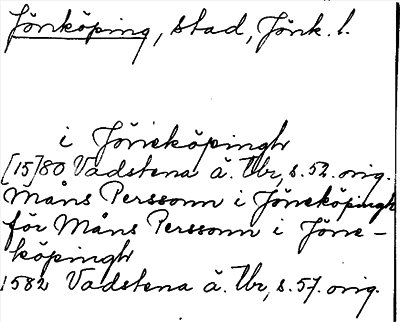 Jönköping, stad, Jönk. l.
i Jöneköpingh
[15]80 Vadstena ä. Tbr, s. 52. orig.
Måns Perssonn i Jöneköpingh
för Måns Perssonn i Jöne-
köpingh
1582 Vadstena ä. Tbr, s. 57. orig.